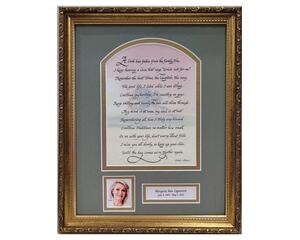 A Limb has fallen from the family tree.
I keep hearing a voice that says "Grieve not for me."
Remember the best times, the laughter, the song.
The good life I lived while I was strong.
Continue my heritage, I'm counting on you.
Keep smiling and surely the sun will shine through.
My mind is at ease, my soul is at rest.
Remembering all, how I truly was blessed.
Continue traditions, no matter how small.
Go on with your life, don't worry about falls.
I miss you all dearly, so keep up your chin.
Until the day comes we're together again.